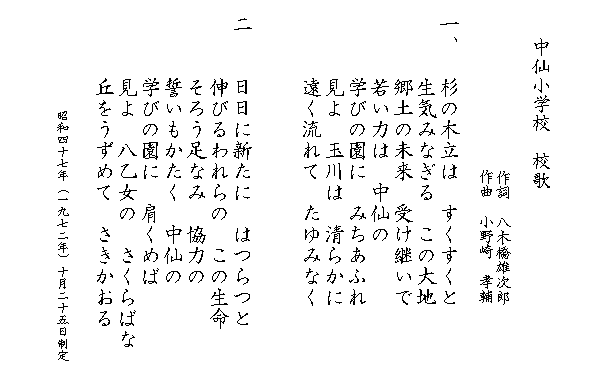 中仙小学校　校歌
作詞　八木橋雄次郎
作曲　小野崎　孝輔
一、
杉の木立は　すくすくと
生気みなぎる　この大地
郷土の未来　受け継いで
若い力は　中仙の
学びの園に　みちあふれ
見よ　玉川は　清らかに
遠く流れて　たゆみなく
二
日日に新たに　はつらつと
伸びるわれらの　この生命
そろう足なみ　協力の
誓いもかたく　中仙の
学びの園に　肩くめば
見よ　八乙女の　さくらばな
丘をうずめて　さきかおる
昭和四十七年（一九七二年）十月二十五日制定